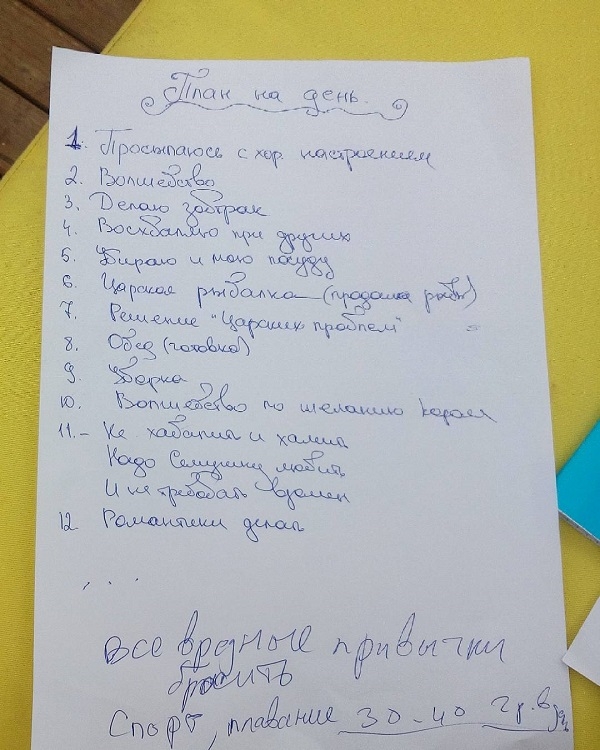 План на день.
1. Просыпаюсь с хор. настроением
2. Волшебство
3. Делаю завтрак
4. Восхваляю при других
5. Убираю и мою посуду
6. Царская рыбалка (продажа рыбы)
7. Решение "Царских проблем"
8. Обед (готовка)
9. Уборка
10. Волшебство по желанию Короля
11. - Не хабалить и хамить
Надо Семушку любить
И не требовать взамен
12 Романтики делать
...
все вредные привычки
бросить
Спорт, плавание 30-40 гр. в день